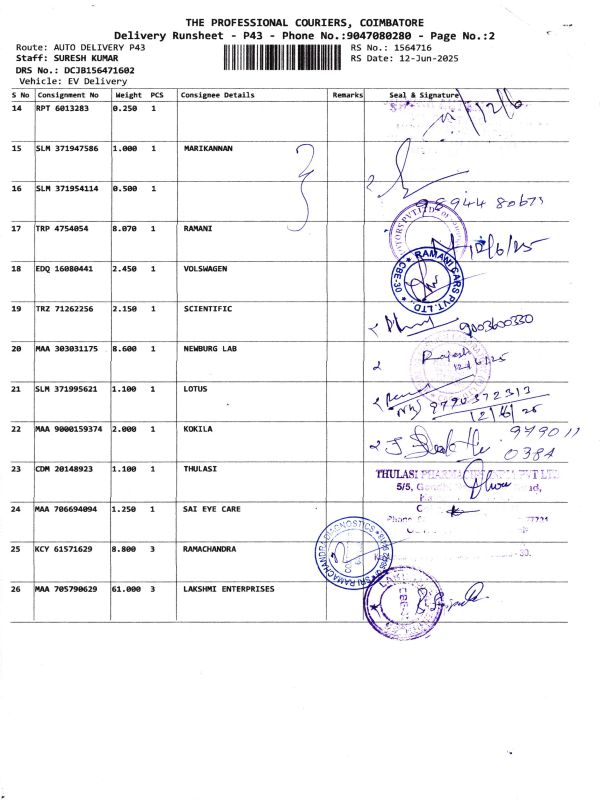 THE PROFESSIONAL COURIERS, COIMBATORE
Delivery Runsheet - P43 - Phone No.:9047080280 - Page No.:2
Route: AUTO DELIVERY P43
RS No.: 1564716
Staff: SURESH KUMAR
RS Date: 12-Jun-2025
DRS No.: DCJB156471602
Vehicle: EV Delivery
S No Consignment No Weight PCS Consignee Details Remarks Seal & Signature
14 RPT 6013283 0.250 1 12/6
15 SLM 371947586 1.000 1 MARIKANNAN
16 SLM 371954114 0.500 1
17 TRP 4754054 8.070 1 RAMANI 12/6/25
18 EDQ 16080441 2.450 1 VOLSWAGEN RAMANI CARS PVT. LTD. CBE-30
19 TRZ 71262256 2.150 1 SCIENTIFIC 9003600330
20 MAA 303031175 8.600 1 NEWBURG LAB Rajesh 12/6/25
21 SLM 371995621 1.100 1 LOTUS 9790372313
12/6/25
22 MAA 9000159374 2.000 1 KOKILA 979011
0384
23 CDM 20148923 1.100 1 THULASI THULASI PVT LTD
5/5,
24 MAA 706694094 1.250 1 SAI EYE CARE
25 KCY 61571629 8.800 3 RAMACHANDRA SRI RAMACHANDRA DIAGNOSTICS
26 MAA 705790629 61.000 3 LAKSHMI ENTERPRISES